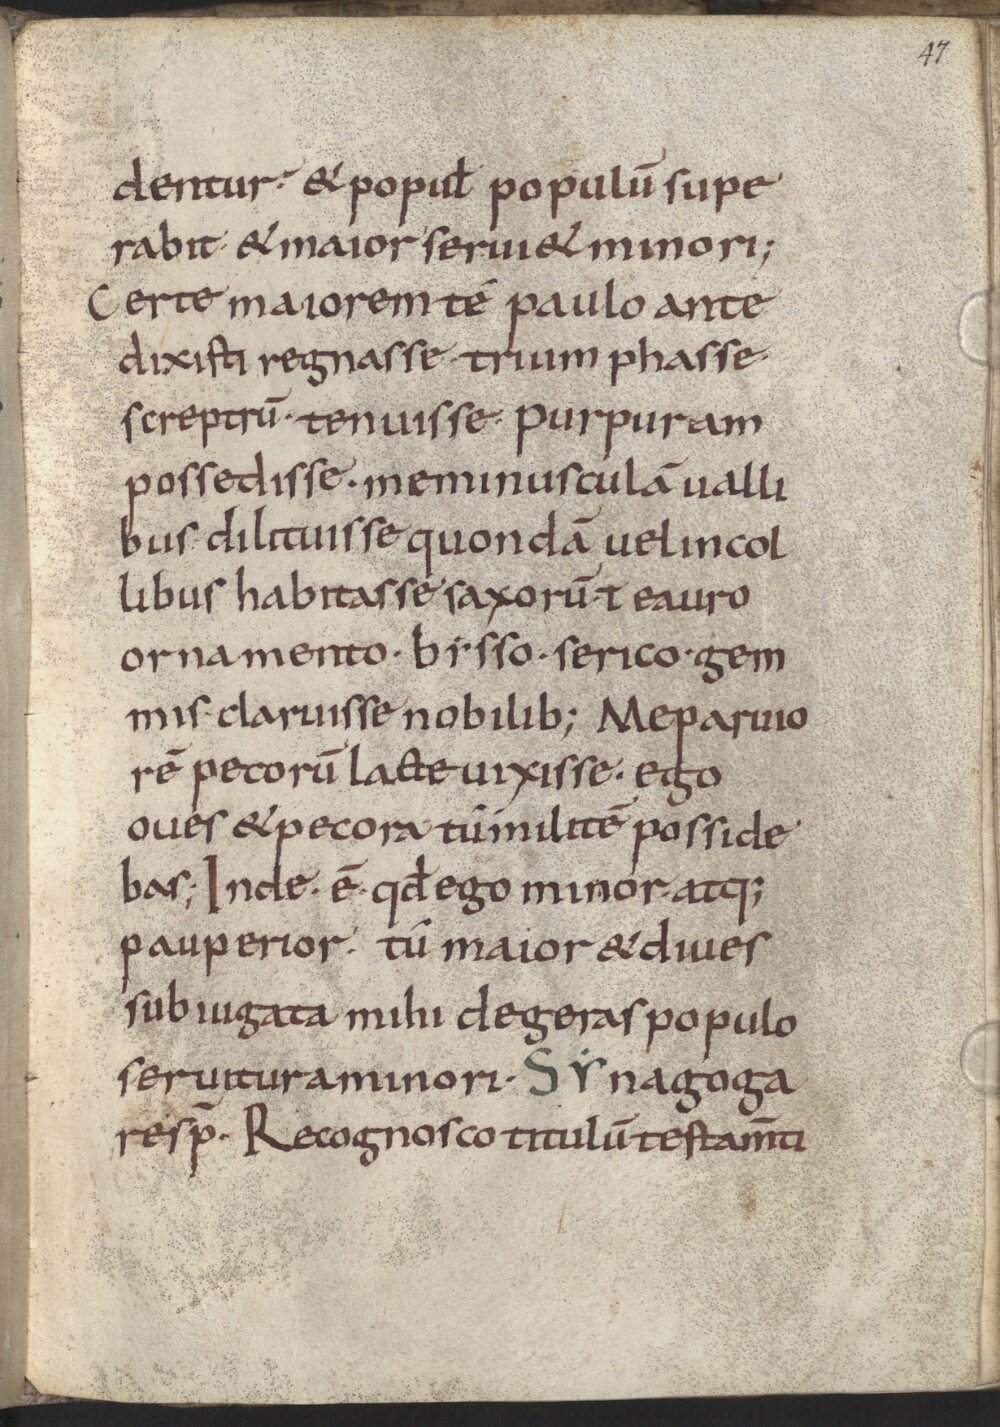 47
dentur· & popuł populū supe
rabit· & maior serui& minori;
Certe maiorem té paulo ante
dixisti regnasse· trium phasse·
screptrū· tenuisse· Purpuram
possedisse· me minusculā ualli
bus dilituisse quondā uel in col
libus habitasse saxorū· t e auro
ornamento· bẏsso· serico· gem
mis claruisse nobilib; Me paruio
rē pecorū lacte uixisse· ego
oues & pecora tú militē posside
bas; Inde· ē· qđ ego minor· atq;
pauperior· tú maior & diues
subiugata mihi degeras populo
seruitura minori· SẎnagoga
resp̄· Recognosco titulū testam̄ti